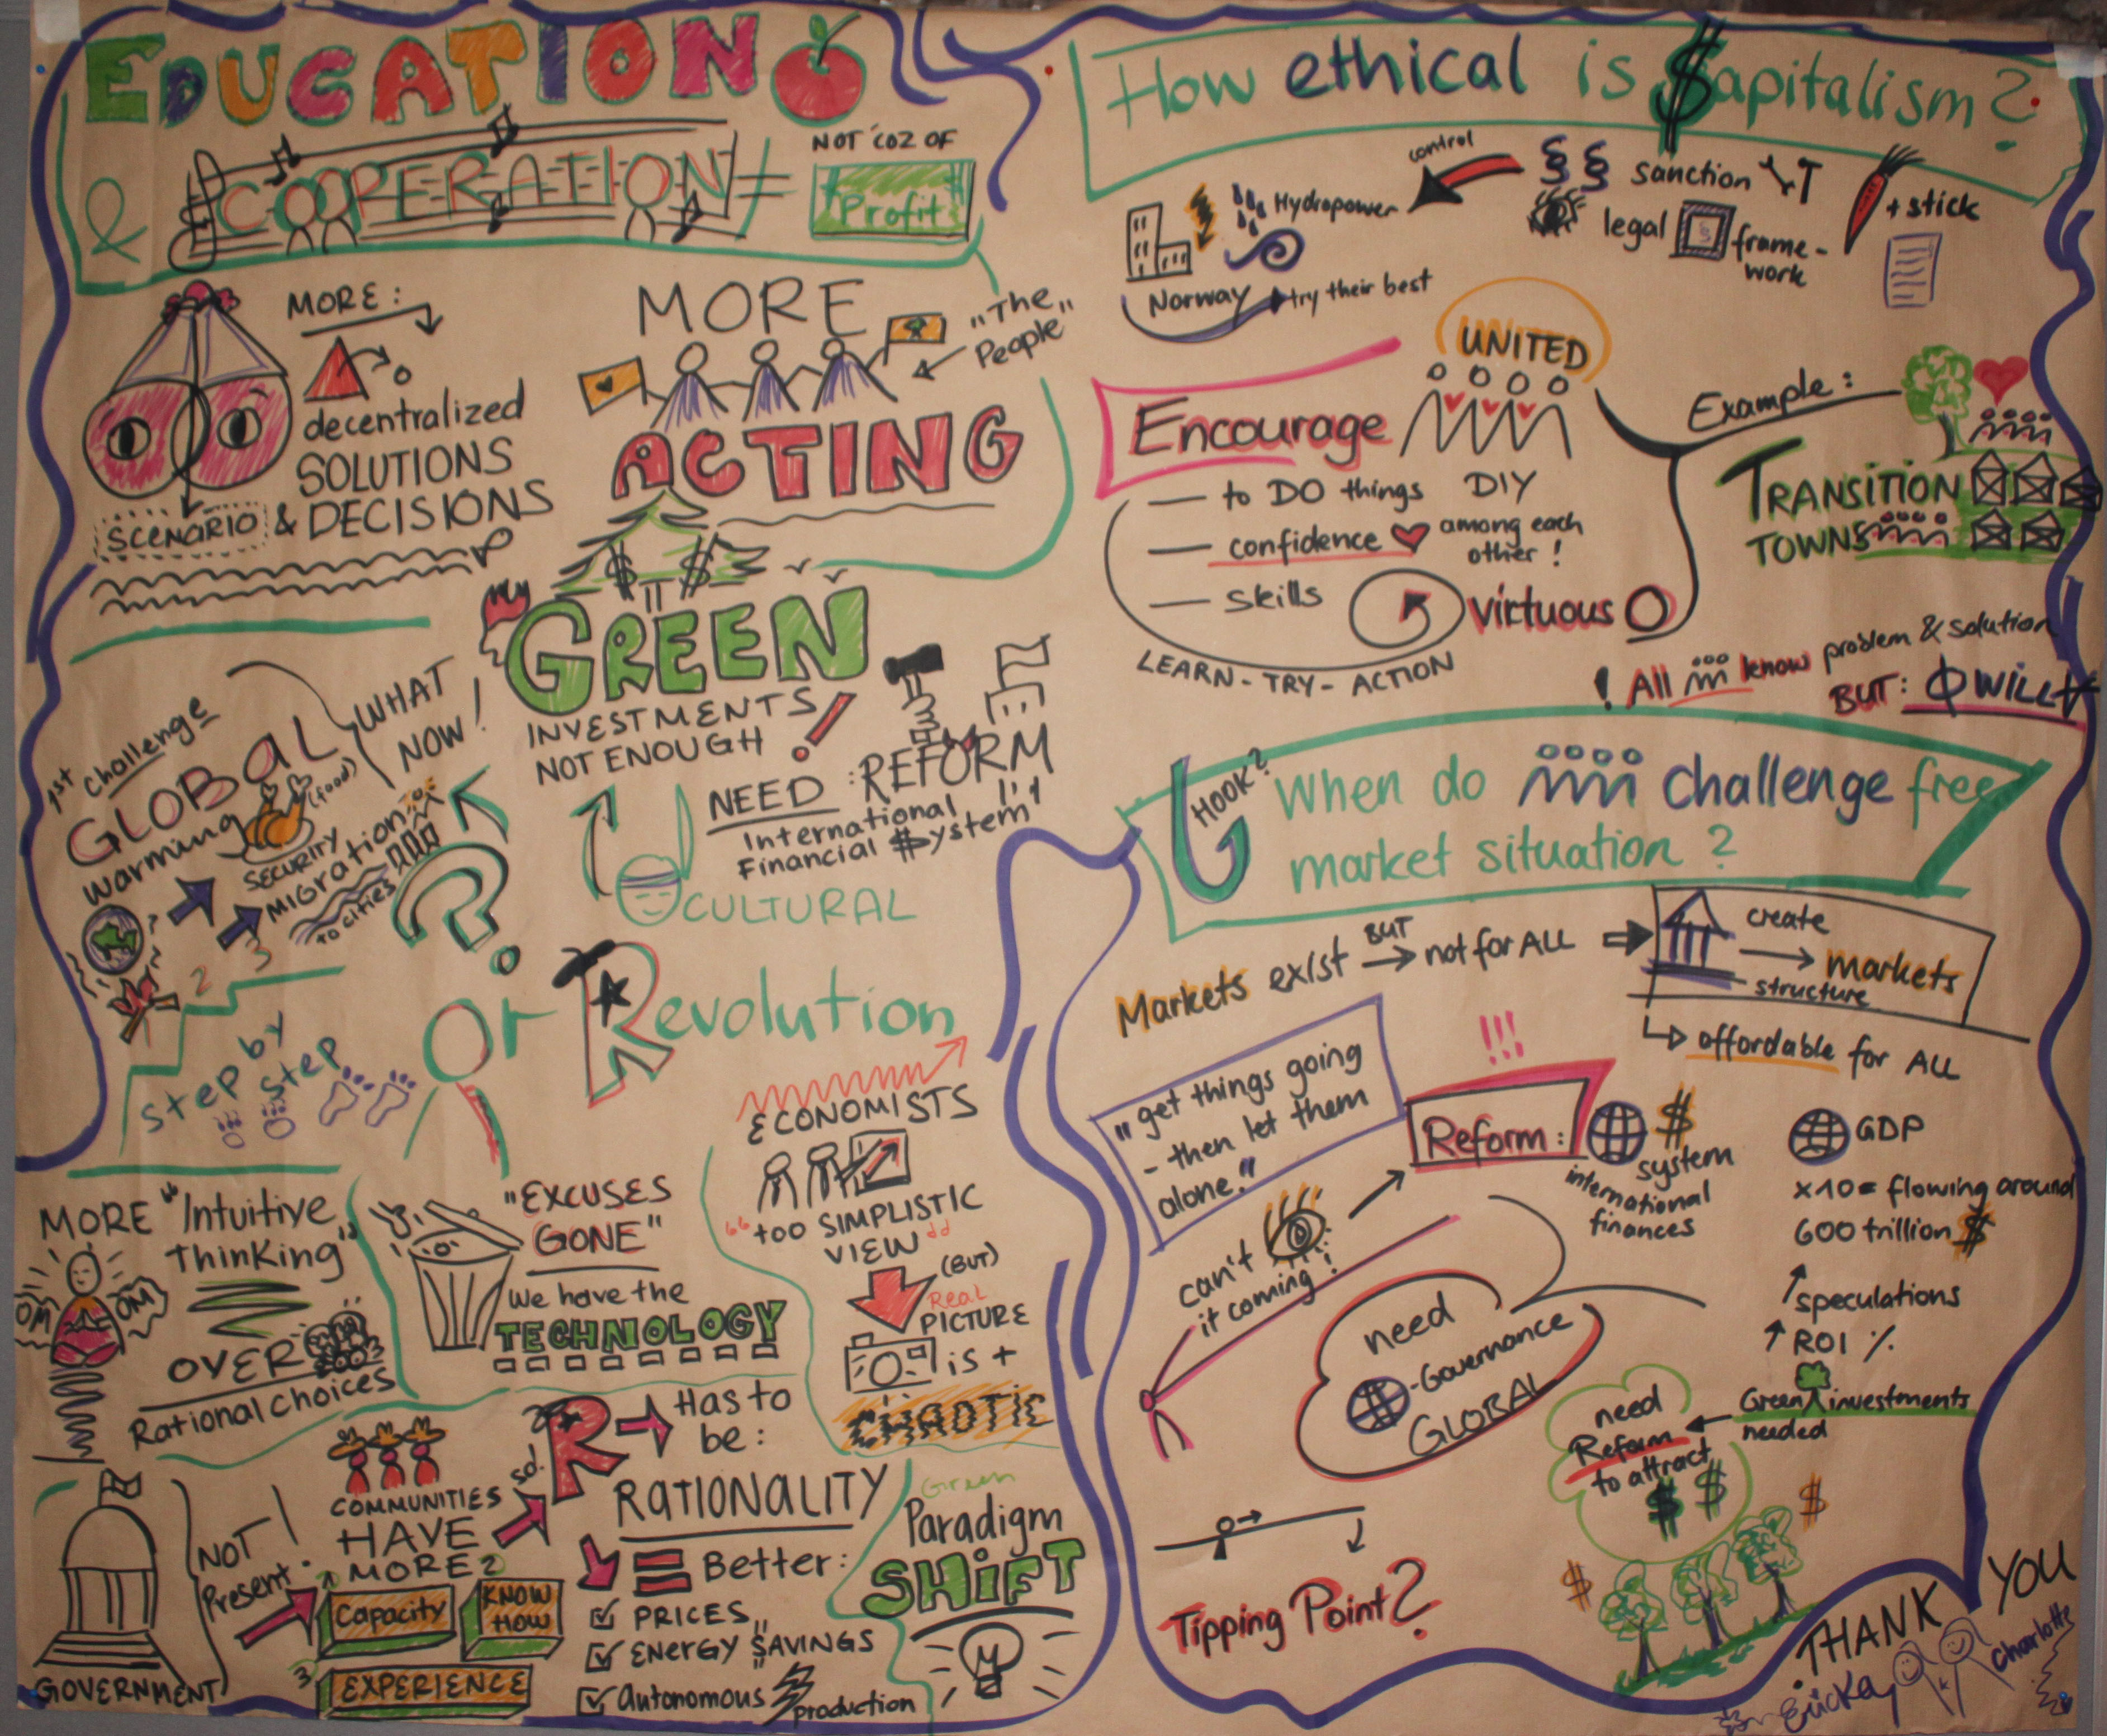 EDUCATION
& COOPERATION ≠
NOT 'COZ OF
Profit
MORE :
decentralized
SOLUTIONS
SCENARIO & DECISIONS
MORE
„The„
People
ACTING
GREEN
INVESTMENTS
NOT ENOUGH !
NEED : REFORM
International
Financial $ystem
1st challenge
GLOBAL
warming
(food)
SECURITY
MIGration
to cities
WHAT
NOW !
2
3
?
CULTURAL
step by
step
Or Revolution
MORE "Intuitive
Thinking"
OM
OM
OVER
Rational choices
"EXCUSES
GONE"
we have the
TECHNOLOGY
ECONOMISTS
"too SIMPLISTIC
VIEW"
(BUT)
Real
PICTURE
is +
CHAOTIC
GOVERNMENT
NOT
Present !
COMMUNITIES
HAVE
MORE
1
2
3
Capacity
KNOW
HOW
EXPERIENCE
so!
R → Has to
be :
RATIONALITY
= Better :
PRICES
ENERGY $AVINGS
Autonomous production
Green
Paradigm
SHiFT
How ethical is $apitalism ?
control
§ § sanction
legal
§
frame-
work
+ stick
Hydropower
Norway
try their best
UNITED
Encourage
— to DO things DIY
— confidence
among each
other !
— skills
virtuous O
LEARN - TRY - ACTION
Example :
TRANSITION
TOWNS
! All know problem & solution
BUT : WILL
HOOK?
When do challenge free
market situation ?
Markets exist
BUT
→ not for ALL
create
→ markets
structure
affordable for ALL
"get things going
- then let them
alone."
!!!
Reform :
$
system
international
finances
GDP
x10 = flowing around
600 trillion $
↑ speculations
↑ ROI %
Green investments
needed
can't
it coming !
need
-Governance
GLOBAL
need
Reform
to attract
$ $
$
$
Tipping Point ?
THANK YOU
Ericka
Charlotte